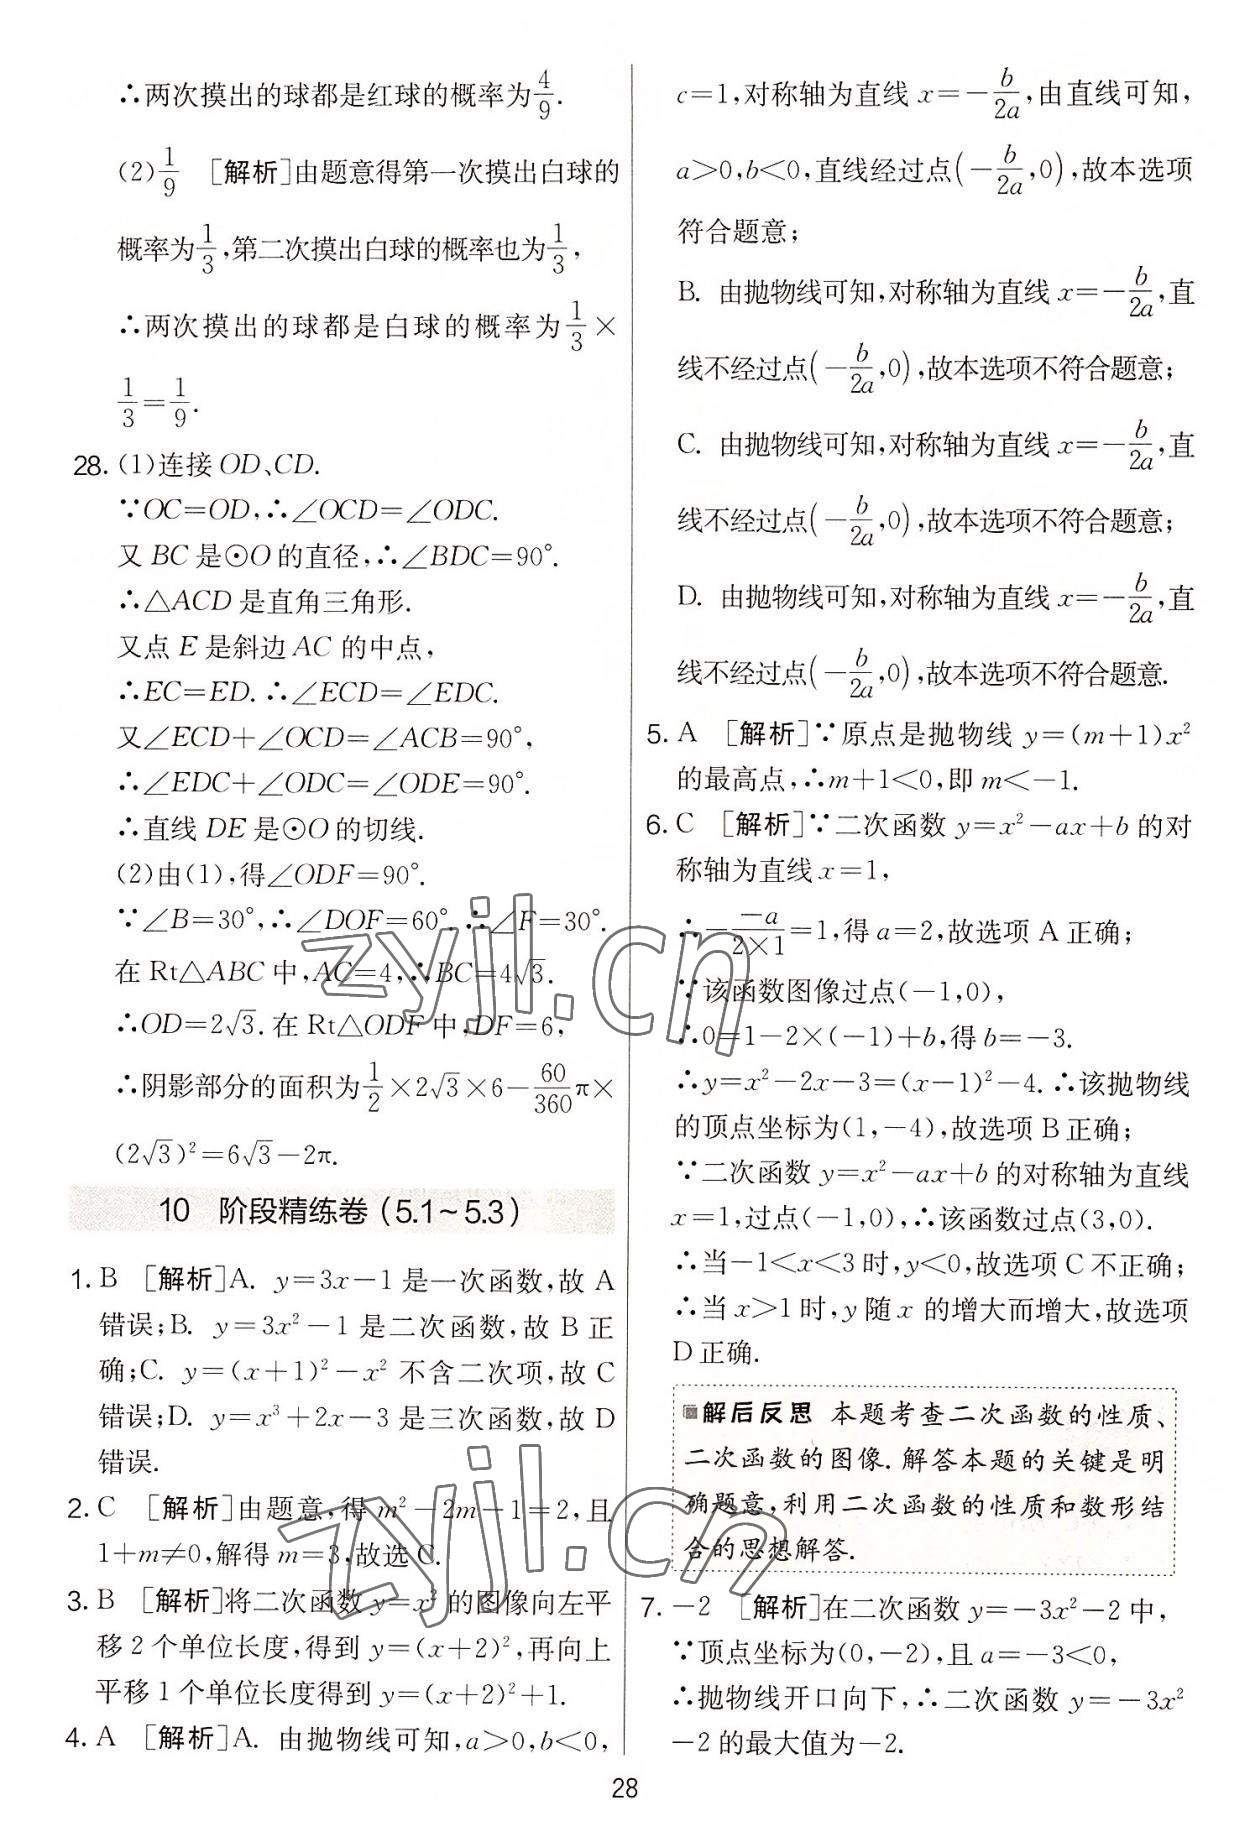 ∴两次摸出的球都是红球的概率为4/9.
(2)1/9 [解析]由题意得第一次摸出白球的
概率为1/3,第二次摸出白球的概率也为1/3,
∴两次摸出的球都是白球的概率为1/3×
1/3=1/9.
28. (1)连接OD、CD.
∵OC=OD,∴∠OCD=∠ODC.
又BC是⊙O的直径,∴∠BDC=90°.
∴△ACD是直角三角形.
又点E是斜边AC的中点,
∴EC=ED.∴∠ECD=∠EDC.
又∠ECD+∠OCD=∠ACB=90°,
∴∠EDC+∠ODC=∠ODE=90°.
∴直线DE是⊙O的切线.
(2)由(1),得∠ODF=90°.
∵∠B=30°,∴∠DOF=60°.∴∠F=30°.
在Rt△ABC中,AC=4,∴BC=4√3.
∴OD=2√3.在Rt△ODF中,DF=6,
∴阴影部分的面积为1/2×2√3×6-60/360π×
(2√3)²=6√3-2π.
10 阶段精练卷(5.1~5.3)
1. B [解析]A. y=3x-1是一次函数,故A
错误;B. y=3x²-1是二次函数,故B正
确;C. y=(x+1)²-x²不含二次项,故C
错误;D. y=x³+2x-3是三次函数,故D
错误.
2. C [解析]由题意,得m²-2m-1=2,且
1+m≠0,解得m=3,故选C.
3. B [解析]将二次函数y=x²的图像向左平
移2个单位长度,得到y=(x+2)²,再向上
平移1个单位长度得到y=(x+2)²+1.
4. A [解析]A. 由抛物线可知,a>0,b<0,
c=1,对称轴为直线x=-b/2a,由直线可知,
a>0,b<0,直线经过点(-b/2a,0),故本选项
符合题意;
B. 由抛物线可知,对称轴为直线x=-b/2a,直
线不经过点(-b/2a,0),故本选项不符合题意;
C. 由抛物线可知,对称轴为直线x=-b/2a,直
线不经过点(-b/2a,0),故本选项不符合题意;
D. 由抛物线可知,对称轴为直线x=-b/2a,直
线不经过点(-b/2a,0),故本选项不符合题意.
5. A [解析]∵原点是抛物线y=(m+1)x²
的最高点,∴m+1<0,即m<-1.
6. C [解析]∵二次函数y=x²-ax+b的对
称轴为直线x=1,
∴-(-a)/(2×1)=1,得a=2,故选项A正确;
∵该函数图像过点(-1,0),
∴0=1-2×(-1)+b,得b=-3.
∴y=x²-2x-3=(x-1)²-4.∴该抛物线
的顶点坐标为(1,-4),故选项B正确;
∵二次函数y=x²-ax+b的对称轴为直线
x=1,过点(-1,0),∴该函数过点(3,0).
∴当-1<x<3时,y<0,故选项C不正确;
∴当x>1时,y随x的增大而增大,故选项
D正确.
解后反思 本题考查二次函数的性质、
二次函数的图像.解答本题的关键是明
确题意,利用二次函数的性质和数形结
合的思想解答.
7. -2 [解析]在二次函数y=-3x²-2中,
∵顶点坐标为(0,-2),且a=-3<0,
∴抛物线开口向下,∴二次函数y=-3x²
-2的最大值为-2.
28
zyjl.cn
zyjl.cn